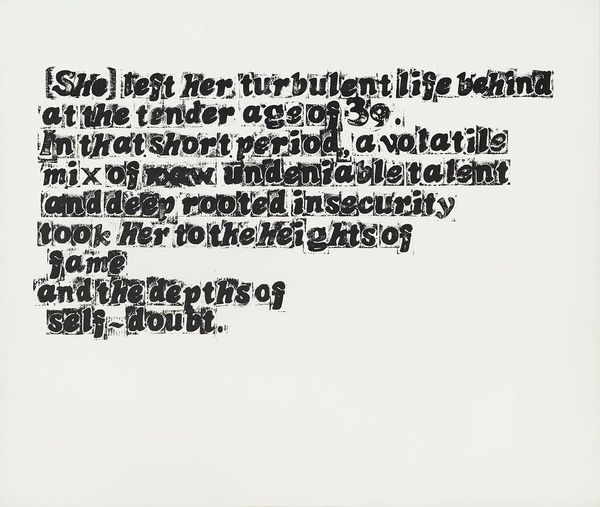 [She] left her turbulent life behind
at the tender age of 39.
In that short period, a volatile
mix of raw undeniable talent
and deep rooted insecurity
took her to the heights of
fame
and the depths of
self-doubt.